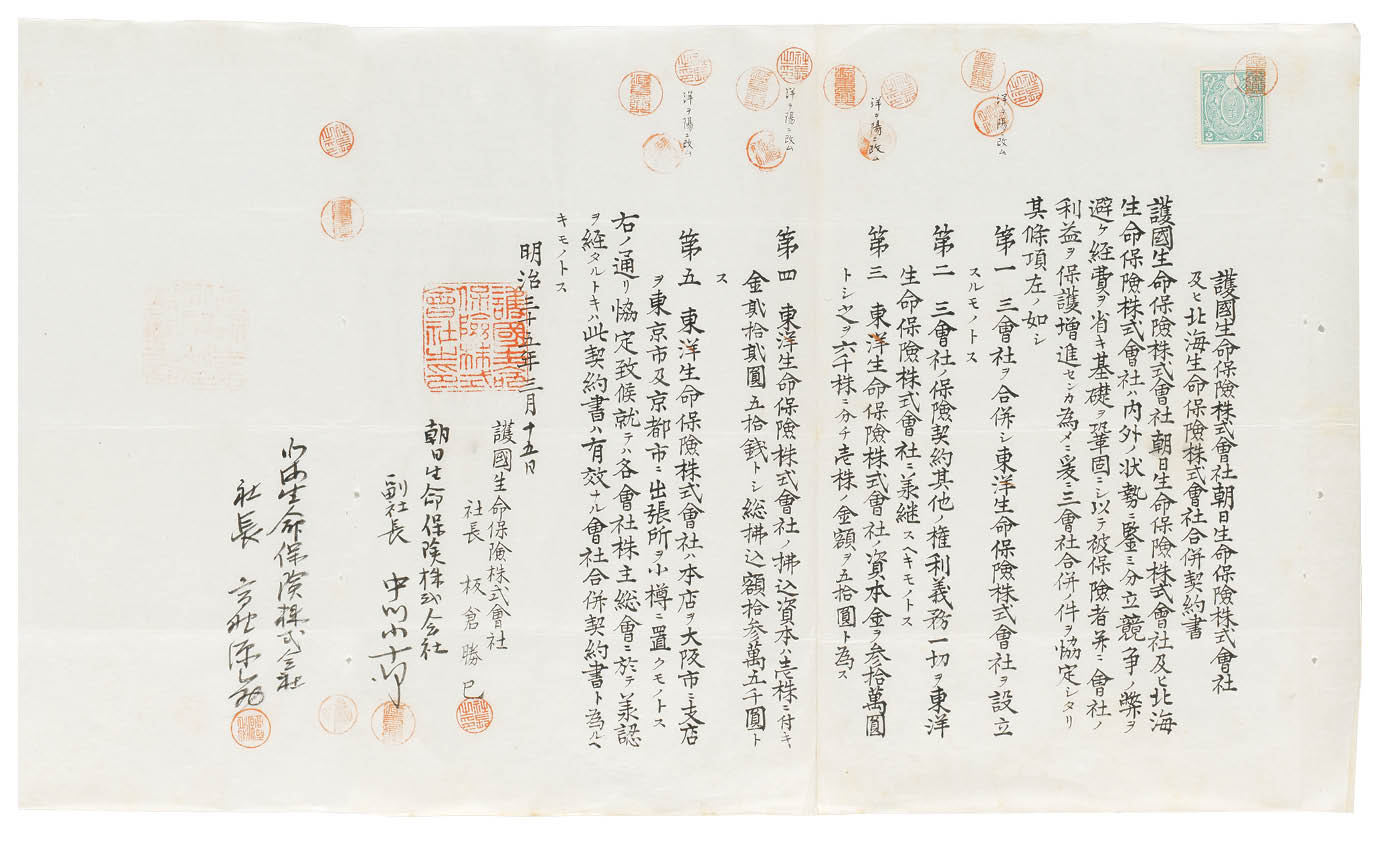 護國生命保險株式會社朝日生命保險株式會社
及ヒ北海生命保險株式會社合併契約書
護國生命保險株式會社朝日生命保險株式會社及ヒ北海
生命保險株式會社ハ内外ノ状勢ニ鑒ミ分立競争ノ弊ヲ
避ケ経費ヲ省キ基礎ヲ鞏固ニシ以テ被保險者并ニ會社ノ
利益ヲ保護增進センカ為メニ爰ニ三會社合併件ヲ協定シタリ
其條項左ノ如シ
第一 三會社ヲ合併シ東洋生命保險株式會社ヲ設立
スルモノトス
第二 三會社ノ保險契約其他ノ權利義務一切ヲ東洋
生命保險株式會社ニ兼継スヘキモノトス
第三 東洋生命保險株式會社ノ資本金ヲ参拾萬圓
トシ之ヲ六千株ニ分チ壱株ノ金額ヲ五拾圓ト為ス
第四 東洋生命保險株式會社ノ拂込資本ハ壱株ニ付キ
金貳拾貳圓五拾錢トシ総拂込額拾参萬五千圓ト
ス
第五 東洋生命保險株式會社ハ本店ヲ大阪市ニ支店
ヲ東京市及京都市ニ出張所ヲ小樽ニ置クモノトス
右ノ通リ協定致候就テハ各會社株主総會ニ於テ兼認
ヲ経タルトキハ此契約書ハ有效ナル會社合併契約書ト為ルヘ
キモノトス
明治三十五年三月十五日
護國生命保險株式會社
社長 板倉勝巳
朝日生命保険株式会社
副社長 中川小十郎
北海生命保険株式会社
社長
洋ヲ陽ニ改ム
洋ヲ陽ニ改ム
洋ヲ陽ニ改ム
洋ヲ陽ニ改ム
護國生命
保險株式
會社之印